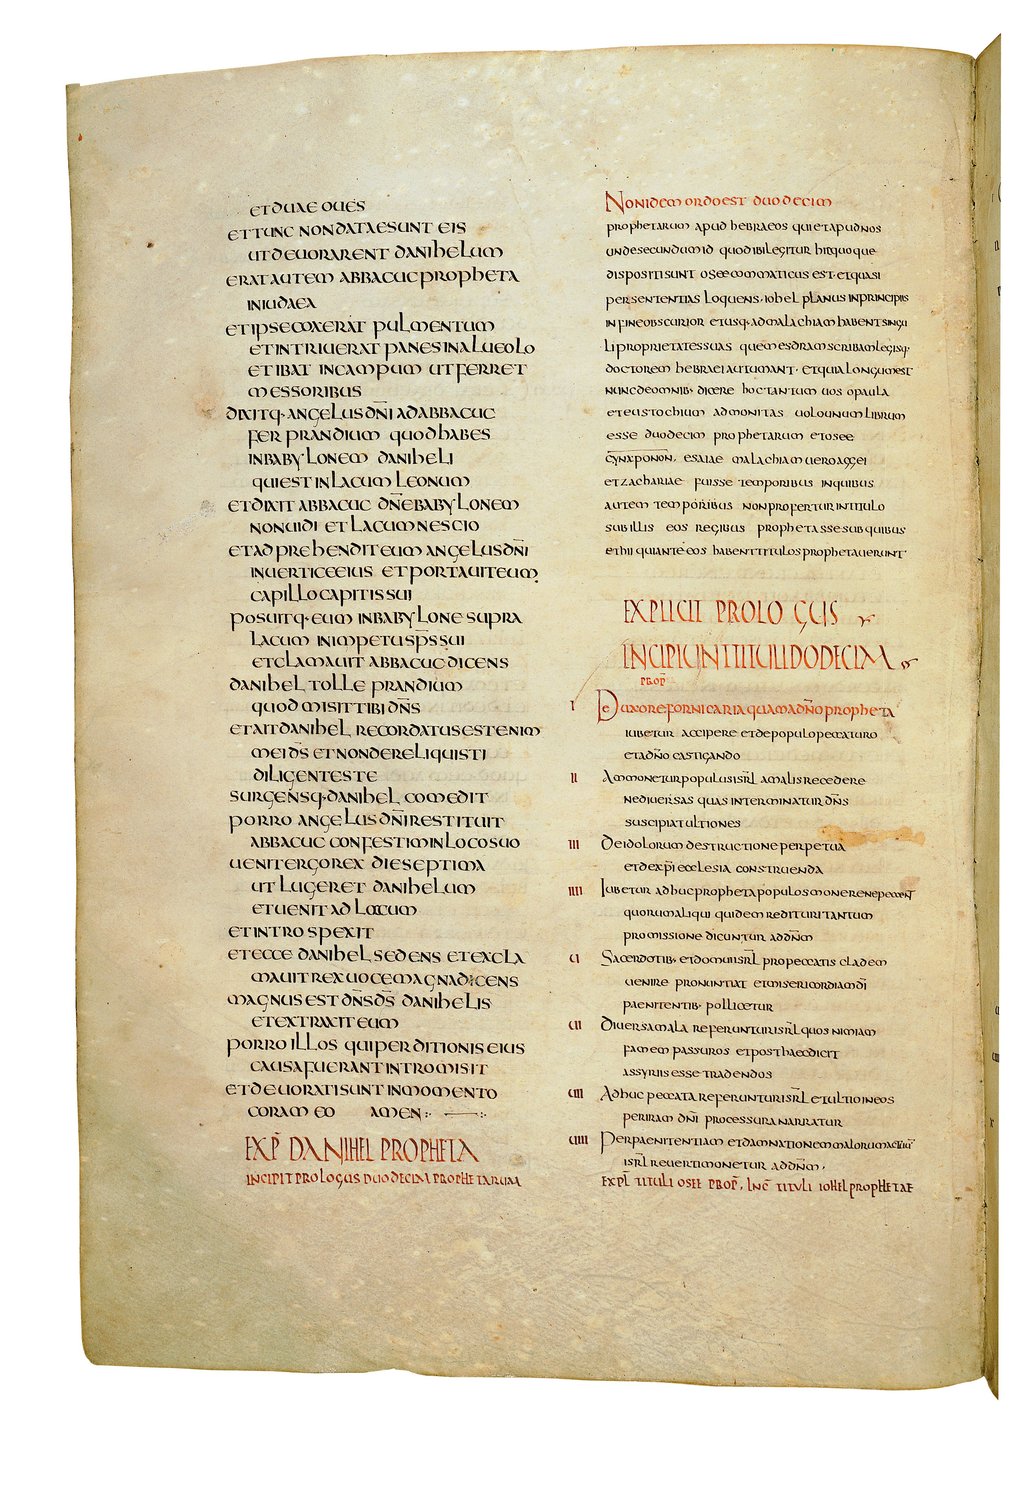 ET DUAE OUES
ET TUNC NON DATAE SUNT EIS
UT DEUORARENT DANIHELUM
ERAT AUTEM ABBACUC PROPHETA
IN IUDAEA
ET IPSE COXERAT PULMENTUM
ET INTRIUERAT PANES IN ALUEOLO
ET IBAT IN CAMPUM UT FERRET
MESSORIBUS
DIXITQ· ANGELUS DN̄I AD ABBACUC
FER PRANDIUM QUOD HABES
IN BABYLONEM DANIHELI
QUI EST IN LACUM LEONUM
ET DIXIT ABBACUC DN̄E BABYLONEM
NON UIDI ET LACUM NESCIO
ET ADPREHENDIT EUM ANGELUS DN̄I
IN UERTICE EIUS ET PORTAUIT EUM
CAPILLO CAPITIS SUI
POSUITQ· EUM IN BABYLONE SUPRA
LACUM IN IMPETU SP̄S SUI
ET CLAMAUIT ABBACUC DICENS
DANIHEL TOLLE PRANDIUM
QUOD MISIT TIBI DN̄S
ET AIT DANIHEL RECORDATUS EST ENIM
MEI D̄S ET NON DERELIQUISTI
DILIGENTES TE
SURGENSQ· DANIHEL COMEDIT
PORRO ANGELUS DN̄I RESTITUIT
ABBACUC CONFESTIM IN LOCO SUO
UENIT ERGO REX DIE SEPTIMA
UT LUGERET DANIHELUM
ET UENIT AD LACUM
ET INTROSPEXIT
ET ECCE DANIHEL SEDENS ET EXCLA
MAUIT REX UOCE MAGNA DICENS
MAGNUS EST DN̄S D̄S DANIHELIS
ET EXTRAXIT EUM
PORRO ILLOS QUI PERDITIONIS EIUS
CAUSA FUERANT INTROMISIT
ET DEUORATI SUNT IN MOMENTO
CORAM EO AMEN
EXP̄ DANIHEL PROPHETA
INCIPIT PROLOGUS DUODECIM PROPHETARUM
NON IDEM ORDO EST DUODECIM
PROPHETARUM APUD HEBRAEOS QUI ET APUD NOS
UNDE SECUNDUM ID QUOD IBI LEGITUR HIC QUOQUE
DISPOSITI SUNT OSEE COMMATICUS EST· ET QUASI
PER SENTENTIAS LOQUENS· IOHEL PLANUS IN PRINCIPIIS
IN FINE OBSCURIOR ET USQ· AD MALACHIAM HABENT SINGU
LI PROPRIETATES SUAS QUEM ESDRAM SCRIBAM LEGISQ·
DOCTOREM HEBRAEI AUTUMANT· ET QUIA LONGUM EST
NUNC DE OMNIB· DICERE HOC TANTUM UOS O PAULA
ET EUSTOCHIUM ADMONITAS UOLO UNUM LIBRUM
ESSE DUODECIM PROPHETARUM ET OSEE
CYNXPONON, ESAIAE MALACHIAM UERO AGGEI
ET ZACHARIAE FUISSE TEMPORIBUS IN QUIBUS
AUTEM TEMPORIBUS NON PROFERTUR IN TITULO
SUB ILLIS EOS REGIBUS PROPHETASSE SUB QUIBUS
ET HII QUI ANTE EOS HABENT TITULOS PROPHETAUERUNT·
EXPLICIT PROLOGUS
INCIPIUNT TITULI DODECIM
PROP̄
I DE UXORE FORNICARIA QUAM A DN̄O PROPHETA
IUBETUR ACCIPERE ET DE POPULO PECCATURO
ET A DN̄O CASTIGANDO
II AMMONETUR POPULUS ISRL̄ A MALIS RECEDERE
NE DIUERSAS QUAS INTERMINATUR DN̄S
SUSCIPIAT ULTIONES
III DE IDOLORUM DESTRUCTIONE PERPETUA
ET DE XP̄I ECCLESIA CONSTRUENDA
IIII IUBETUR ADHUC PROPHETA POPULOS MONERE NE PECCENT
QUORUM ALIQUI QUIDEM REDITURI TANTUM
PROMISSIONE DICUNTUR AD DN̄M
UI SACERDOTIB· ET DOMUI ISRL̄ PRO PECCATIS CLADEM
UENIRE PRONUNTIAT ET MISERICORDIAM DĪ
PAENITENTIB· POLLICETUR
UII DIUERSA MALA REFERUNTUR ISRL̄ QUOS NIMIAM
FAMEM PASSUROS ET POST HAEC DICIT
ASSYRIIS ESSE TRADENDOS
UIII ADHUC PECCATA REFERUNTUR ISRL̄ ET ULTIO IN EOS
PER IRAM DN̄I PROCESSURA NARRATUR
UIIII PER PAENITENTIAM ET DAMNATIONEM MALORUM
ISRL̄ REUERTI MONETUR AD DN̄M·
EXPL̄ TITULI OSEE PROP̄, INC̄ TITULI IOHEL PROPHETAE